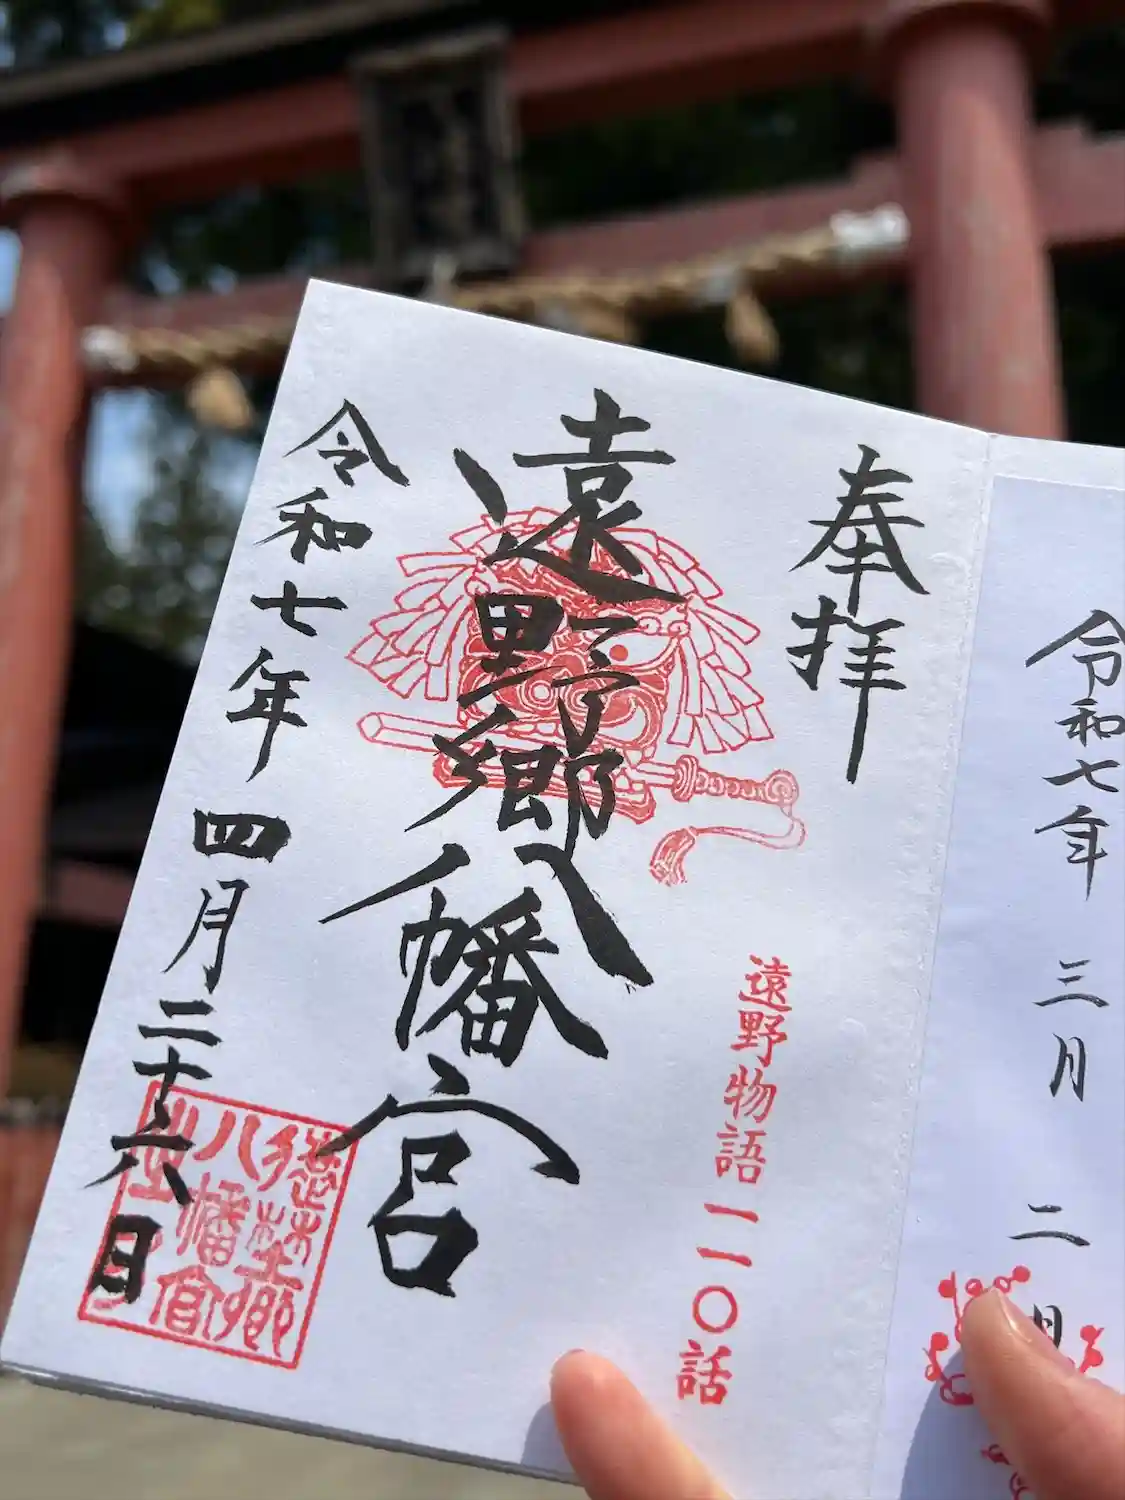 令和七年 三月 二日
奉拝
遠野物語一一〇話
遠野郷八幡宮
遠野郷
八幡宮
令和七年四月二十六日